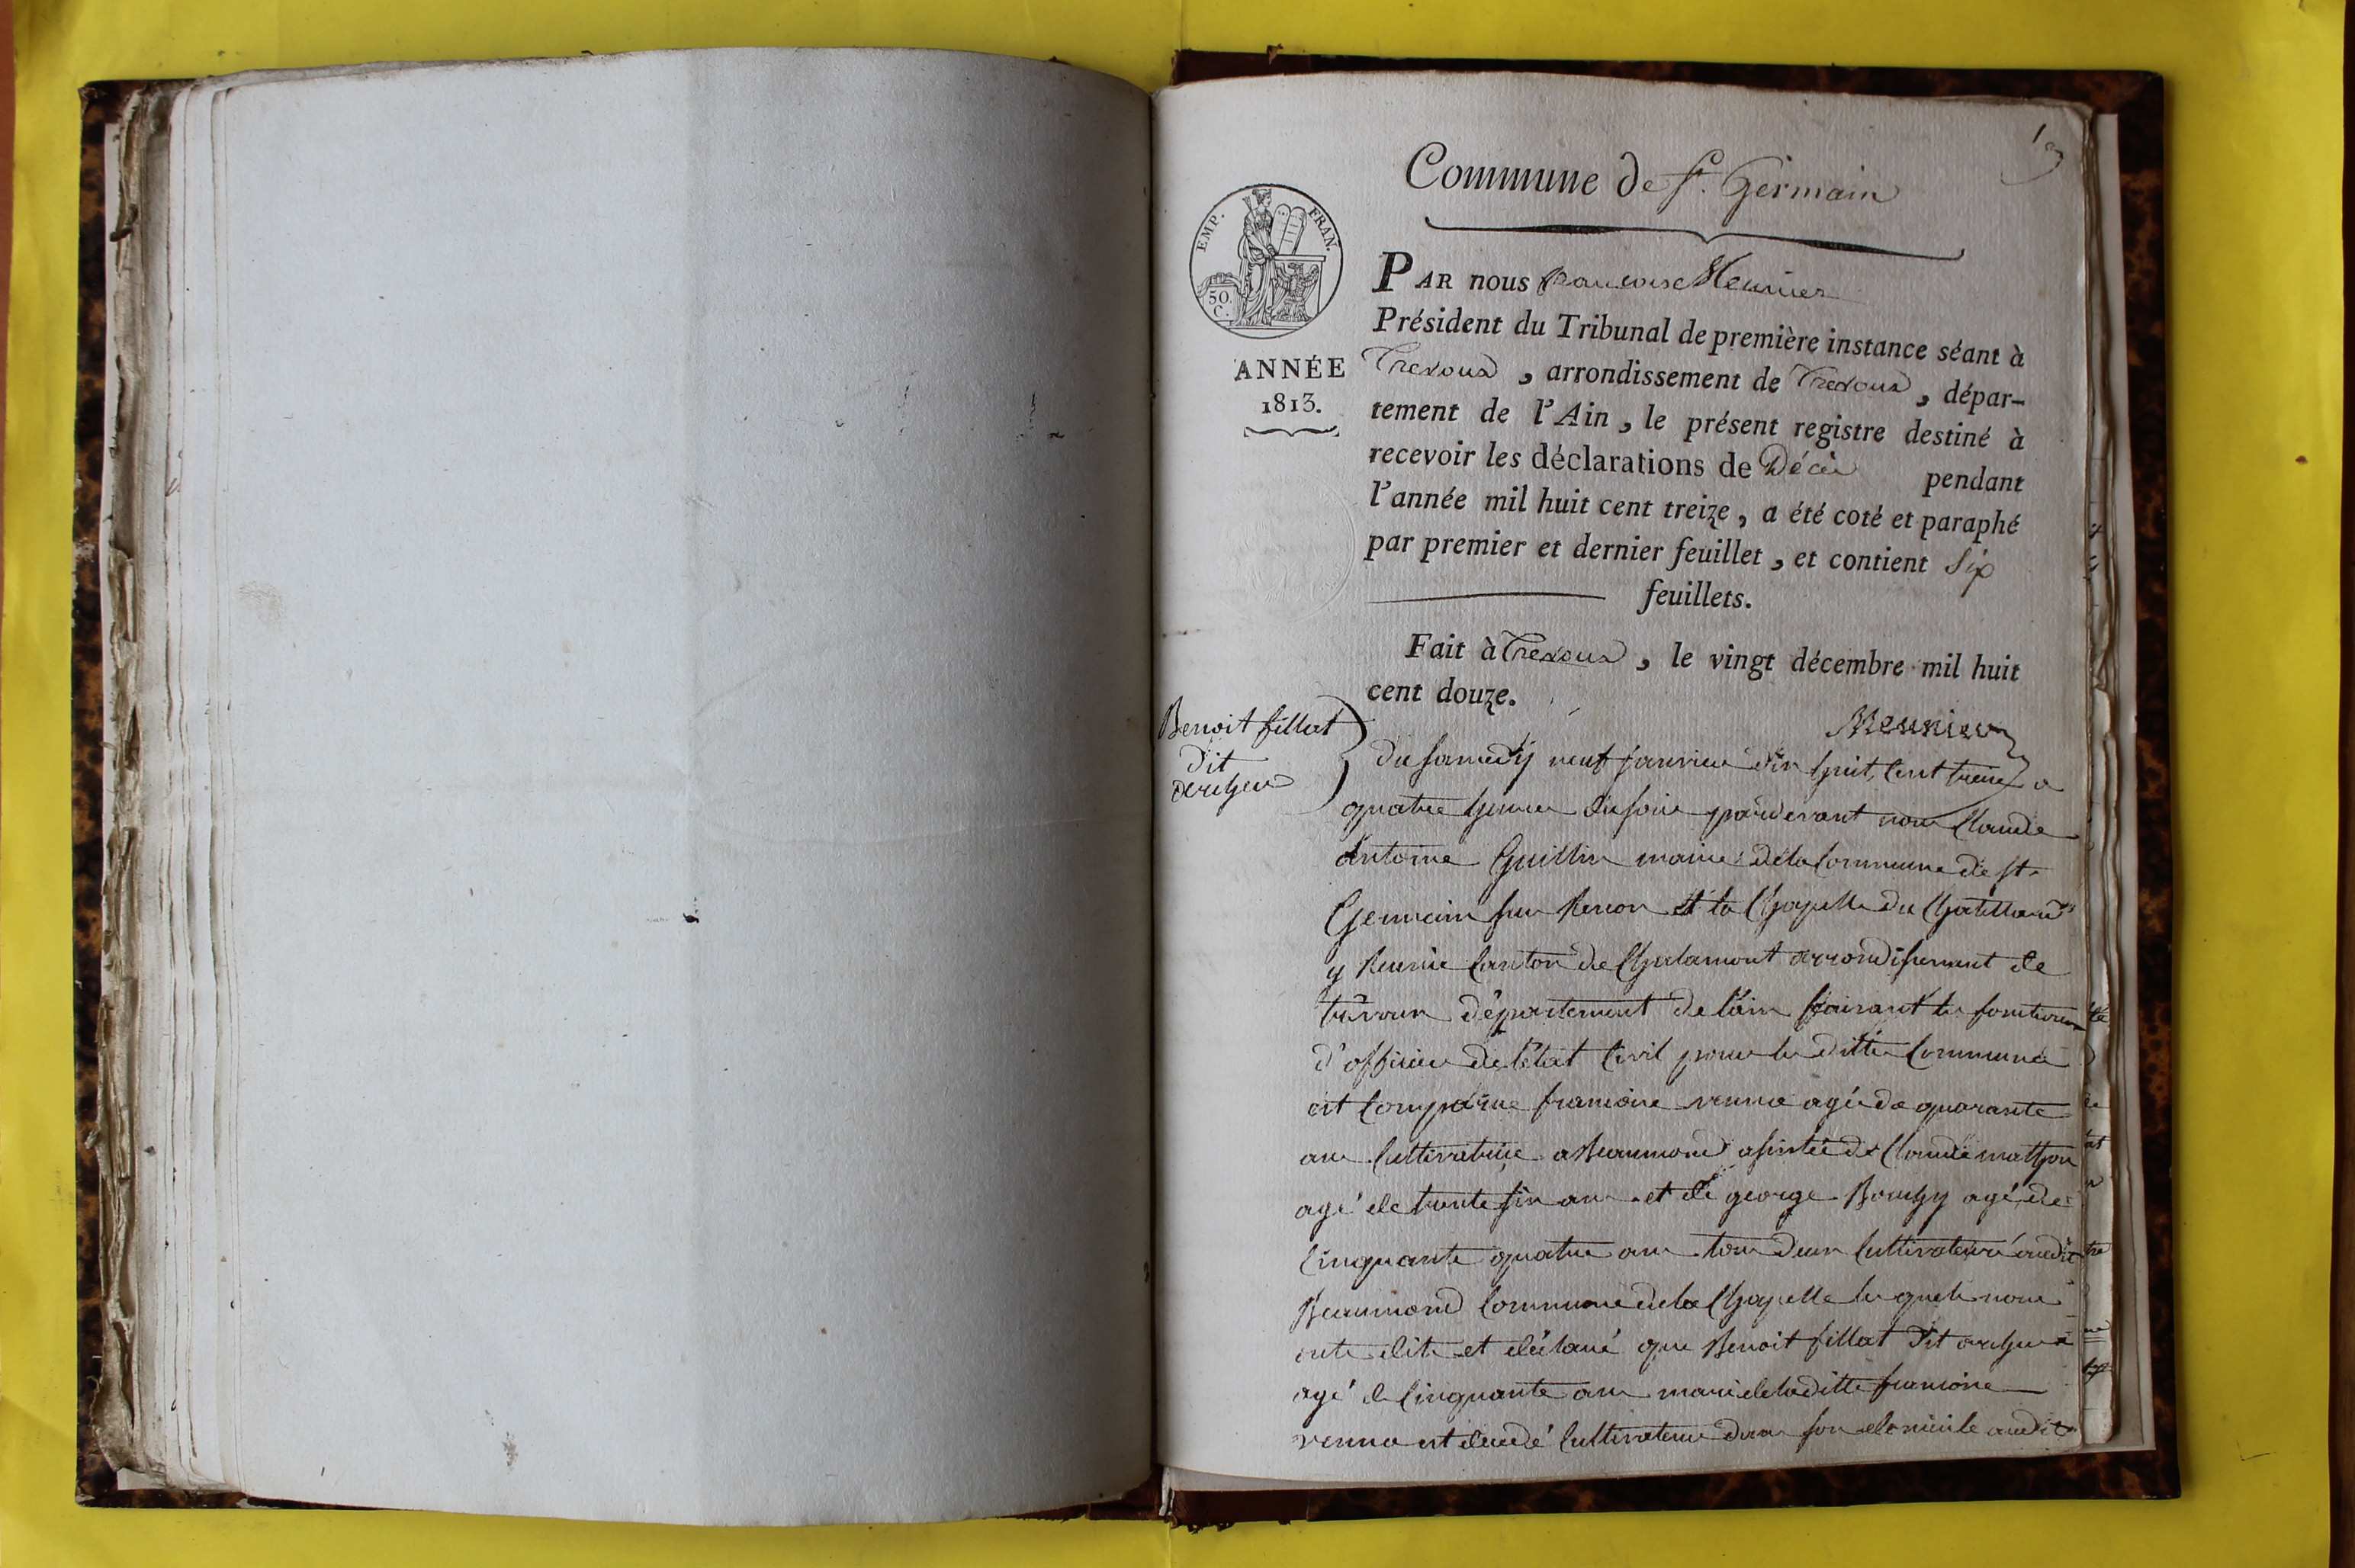 1
Commune de St. Germain
EMP. FRAN.
50.
C.
ANNÉE
1813.
PAR nous François Meunier
Président du Tribunal de première instance séant à
Trevoux, arrondissement de Trevoux, dépar-
tement de l'Ain, le présent registre destiné à
recevoir les déclarations de Décès pendant
l'année mil huit cent treize, a été coté et paraphé
par premier et dernier feuillet, et contient Six
feuillets.
Fait à Trevoux, le vingt décembre mil huit
cent douze.
Meunier
Benoit fillat
dit
du samedÿ neuf janvier dix huit cent treize a
quatre heures du soir pardevant nous Claude
Antoine Guillin maire de la Commune de st.
Germain sur Renon et la Chapelle du Chatellard
y Reunie Canton de Chalamont arrondissement de
trévoux département de l'ain faisant les fonctions
d'officier de l'état Civil pour les dittes Communes
est Comparue françoise venna agée de quarante
ans Cultivatrice a Beaumond assistée de Claude mathon
agé de trente six ans et de george Bouchy agé de
Cinquante quatre ans tous deux Cultivateurs audit
Beaumond Commune de la Chapelle les quels nous
onts dits et déclaré que Benoit fillat dit
agé de Cinquante ans mari de laditte françoise
venna est décédé Cultivateur dans son domicile audit